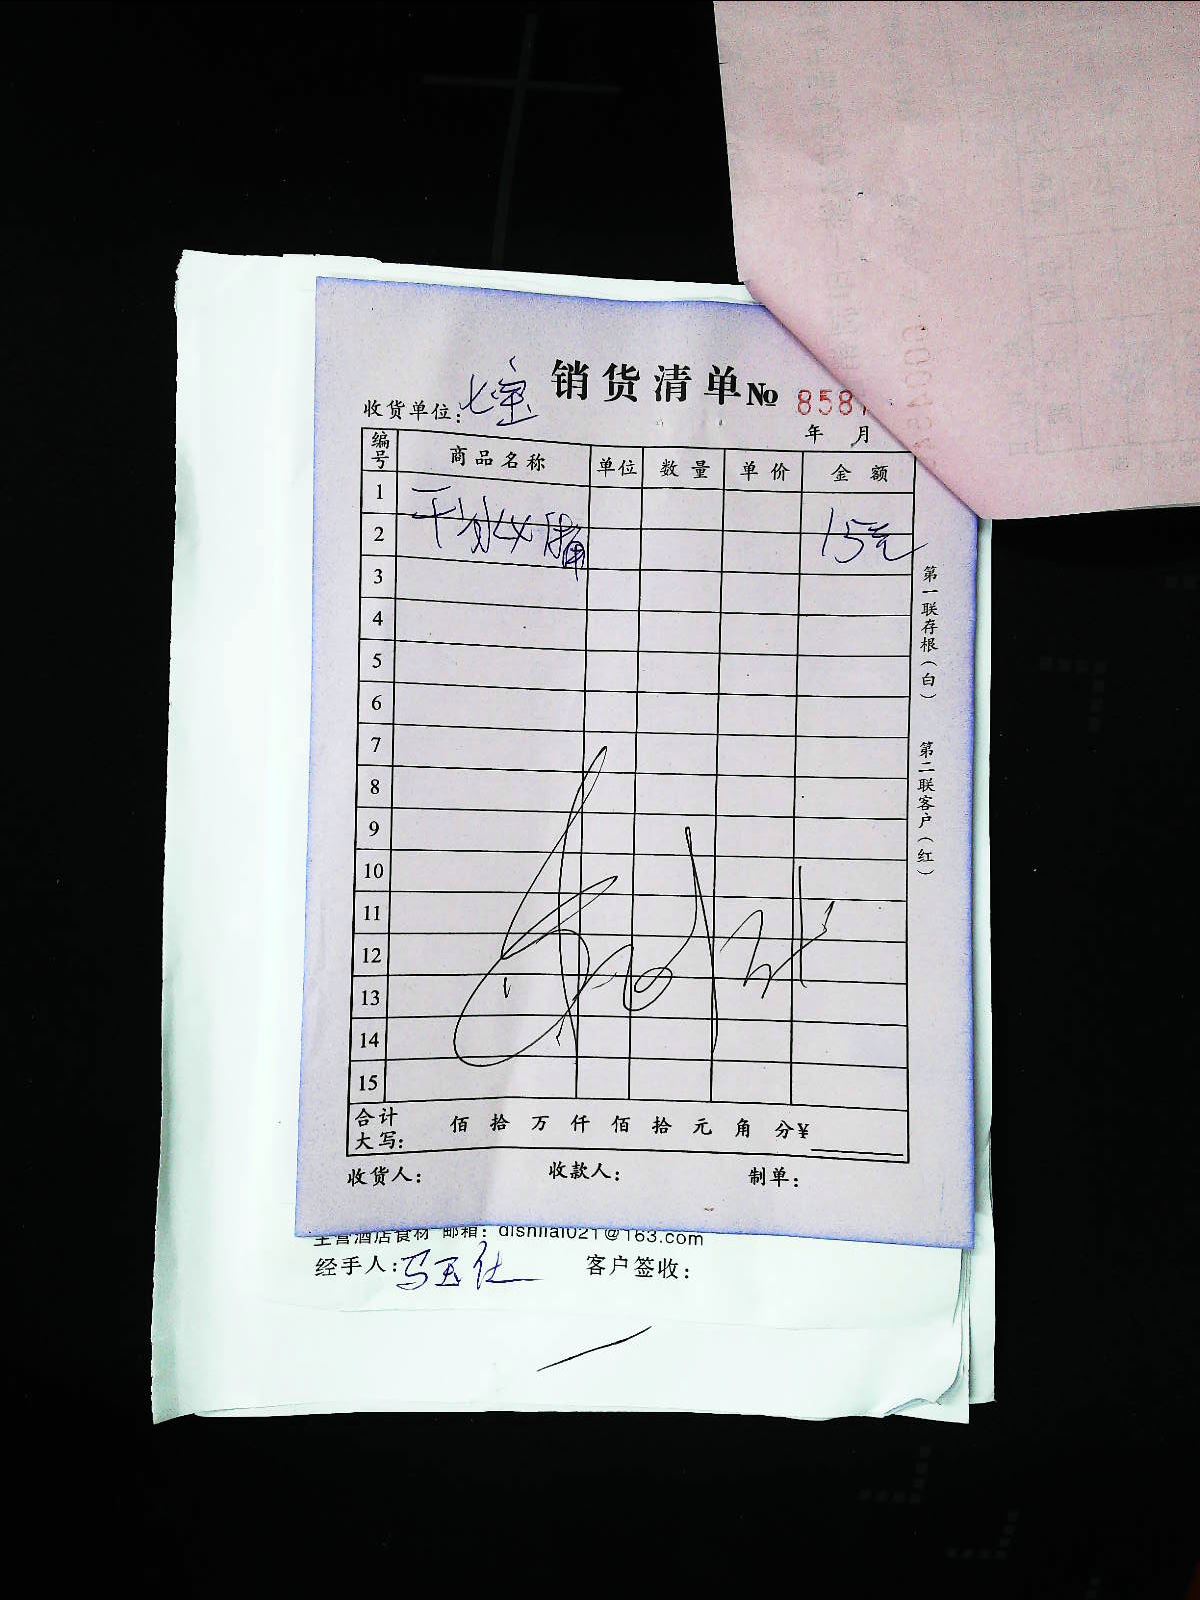 销货清单 № 858
收货单位：七宝
年 月
编号 商品名称 单位 数量 单价 金额
1
2 15元
3
4
5
6
7
8
9
10
11
12
13
14
15
合计大写： 佰 拾 万 仟 佰 拾 元 角 分¥
收货人： 收款人： 制单：
第一联存根（白）
第二联客户（红）
主营酒店食材 邮箱：dishilai021@163.com
经手人：马玉仕 客户签收：